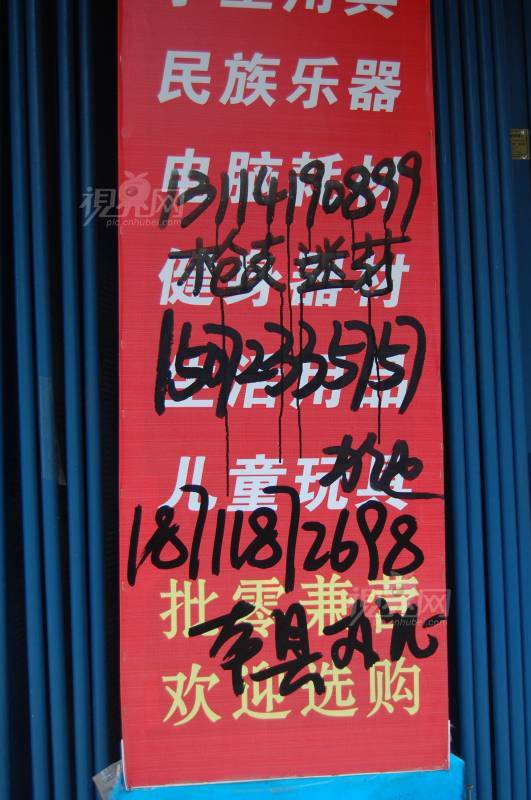 学生用具
民族乐器
电脑耗材
13114190899
视界网
pic.cnhubei.com
枪支迷药
健身器材
15072335757
生活用品
办证
儿童玩具
18711872698
批零兼营
视界网
pic.cnhubei.com
欢迎选购